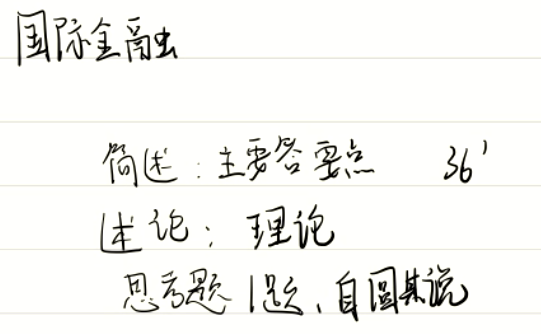 国际金融
简述：主要答要点 36'
述论：理论
思考题1题、自圆其说